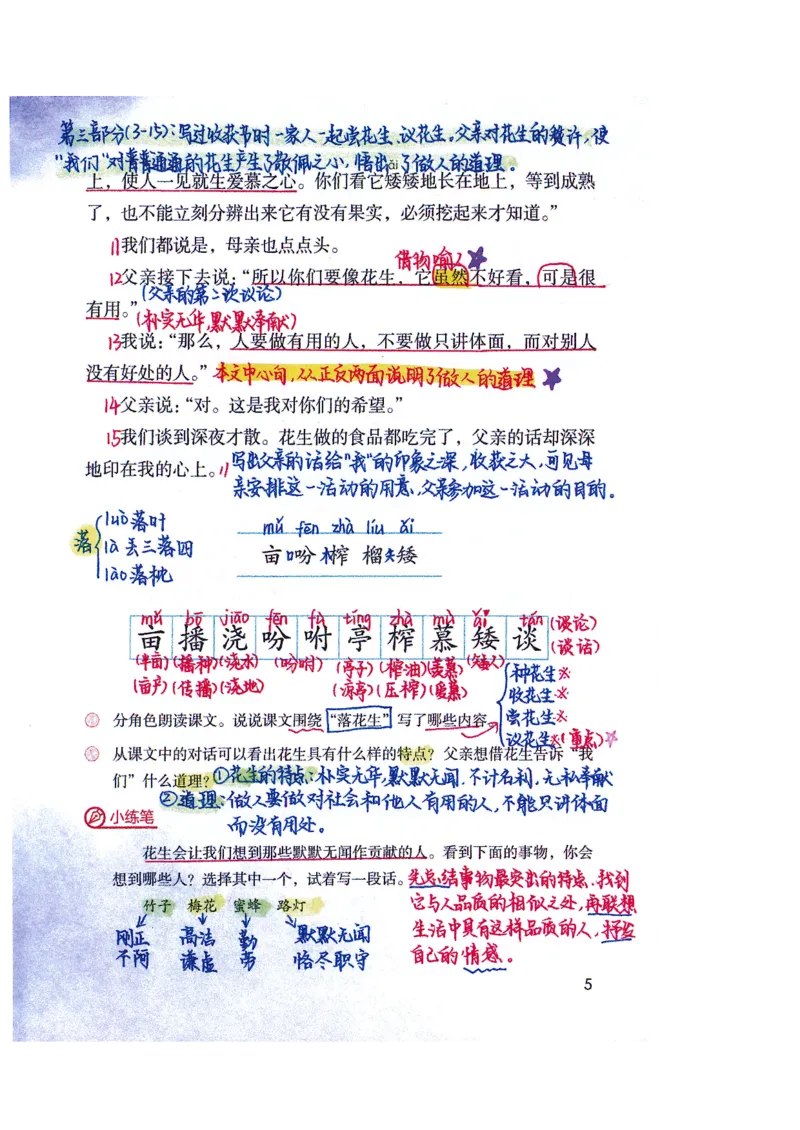 第三部分(3-15):写过收获节时一家人一起尝花生、议花生。父亲对花生的赞许,使
“我们”对普普通通的花生产生了敬佩之心,悟出了做人的道理。
ǎi
上,使人一见就生爱慕之心。你们看它矮矮地长在地上,等到成熟
了,也不能立刻分辨出来它有没有果实,必须挖起来才知道。”
11我们都说是,母亲也点点头。
借物喻人
12父亲接下去说:“所以你们要像花生,它虽然不好看,可是很
(父亲的第二次议论)
有用。”
(朴实无华,默默奉献)
13我说:“那么,人要做有用的人,不要做只讲体面,而对别人
没有好处的人。”本文中心句,从正反两面说明了做人的道理
14父亲说:“对。这是我对你们的希望。”
15我们谈到深夜才散。花生做的食品都吃完了,父亲的话却深深
地印在我的心上。//写出父亲的话给“我”的印象之深,收获之大,可见母
亲安排这一活动的用意、父亲参加这一活动的目的。
落
luò落叶
là丢三落四
lào落枕
mǔ fēn zhà liu ǎi
亩 吩 榨 榴 矮
mǔ bō jiāo fēn fù tíng zhà mù ǎi tán
亩 播 浇 吩 咐 亭 榨 慕 矮 谈
(谈论)
(谈话)
(半亩)(播种)(浇水)(吩咐)(亭子)(榨油)(羡慕)(矮人)
(亩产)(传播)(浇地)(凉亭)(压榨)(爱慕)
种花生
收花生
尝花生
议花生(重点)
分角色朗读课文。说说课文围绕“落花生”写了哪些内容。
从课文中的对话可以看出花生具有什么样的特点?父亲想借花生告诉“我
们”什么道理?①花生的特点:朴实无华,默默无闻,不计名利,无私奉献
②道理:做人要做对社会和他人有用的人,不能只讲体面
而没有用处。
小练笔
花生会让我们想到那些默默无闻作贡献的人。看到下面的事物,你会
想到哪些人?选择其中一个,试着写一段话。
竹子 梅花 蜜蜂 路灯
刚正不阿
高洁谦虚
勤劳
默默无闻恪尽职守
先总结事物最突出的特点,找到
它与人品质的相似之处,再联想
生活中具有这样品质的人,抒发
自己的情感。
5